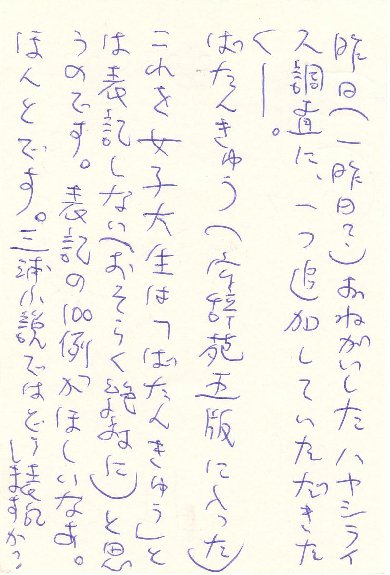 昨日(一昨日?)おねがいしたハヤシライ
ス調査に、一つ追加していただきた
く―。
ばたんきゅう(広辞苑五版に入った)
これを女子大生は「ばたんきゅう」と
は表記しない(おそらく絶対に)と思
うのです。表記の100例がほしいなあ。
ほんとです。三浦小説ではどう表記
しますか?